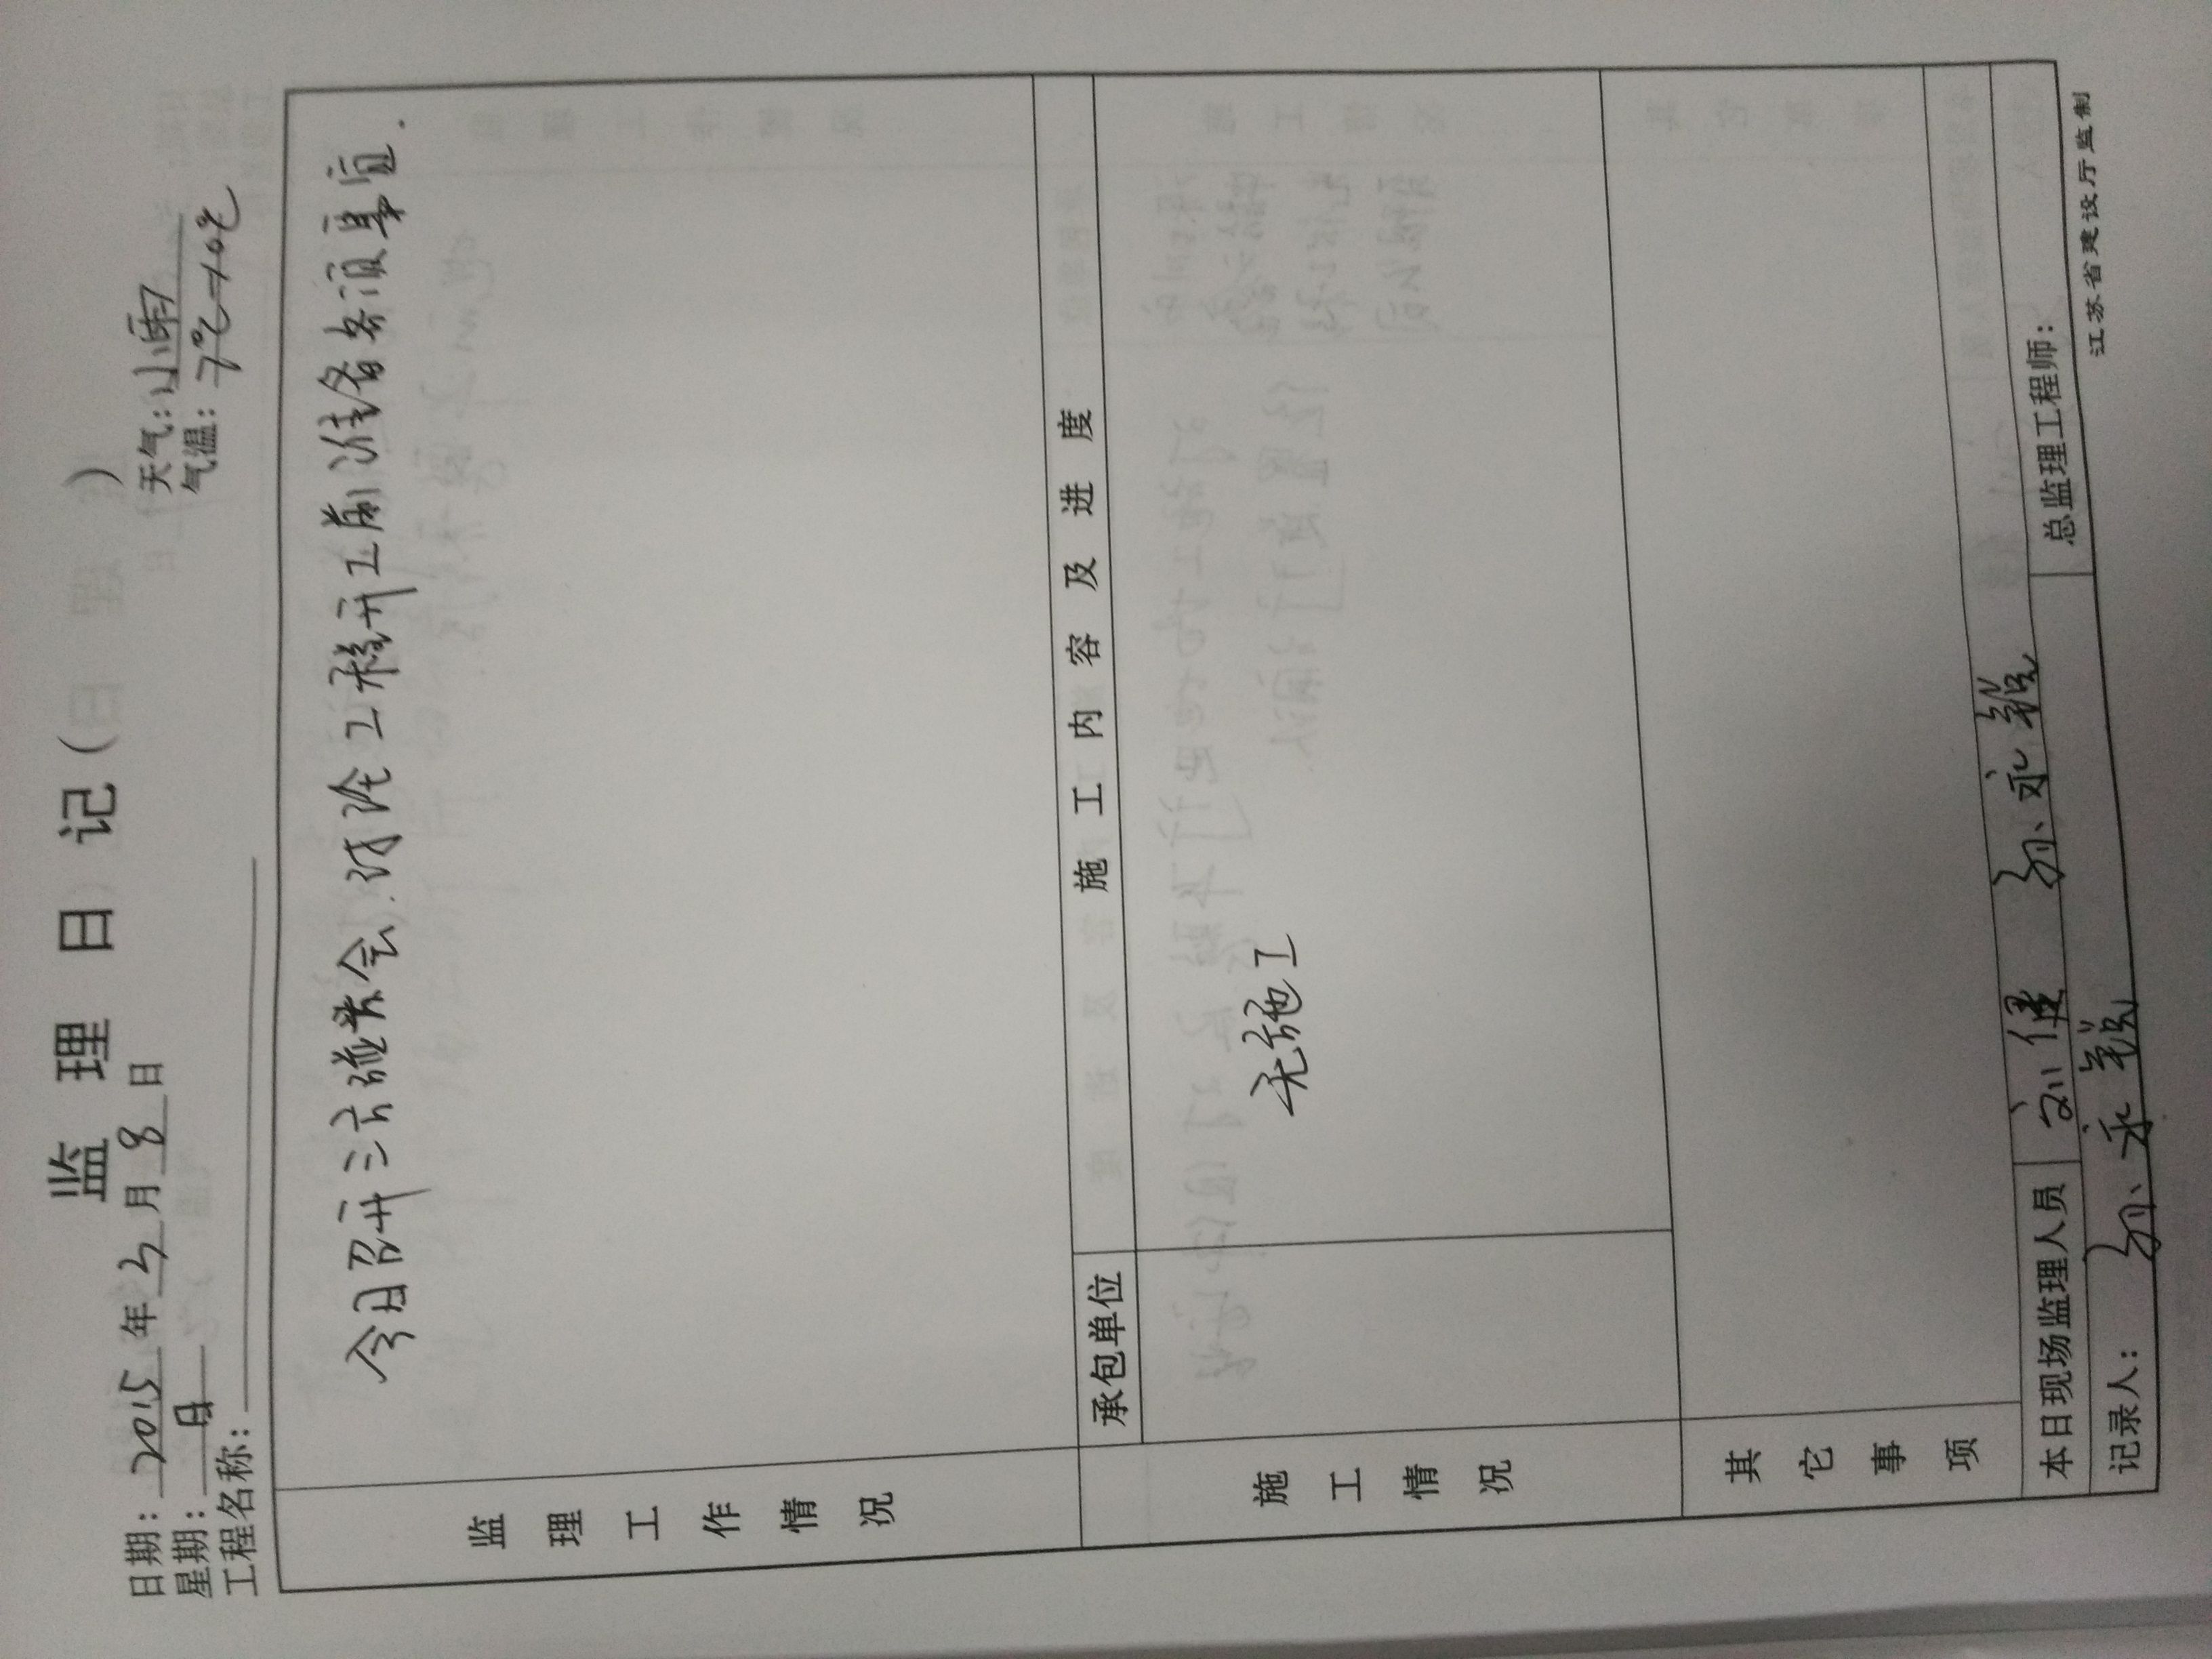 监理日记( )
日期：2015年3月8日 天气：小雨
星期：日 气温：7℃-10℃
工程名称：
监理工作情况
今日召开三方碰头会.讨论工程开工前准备各项事宜.
承包单位 施工内容及进度
施工情况
无施工
其它事项
本日现场监理人员 刘健 孙永
记录人： 孙永 总监理工程师：
江苏省建设厅监制